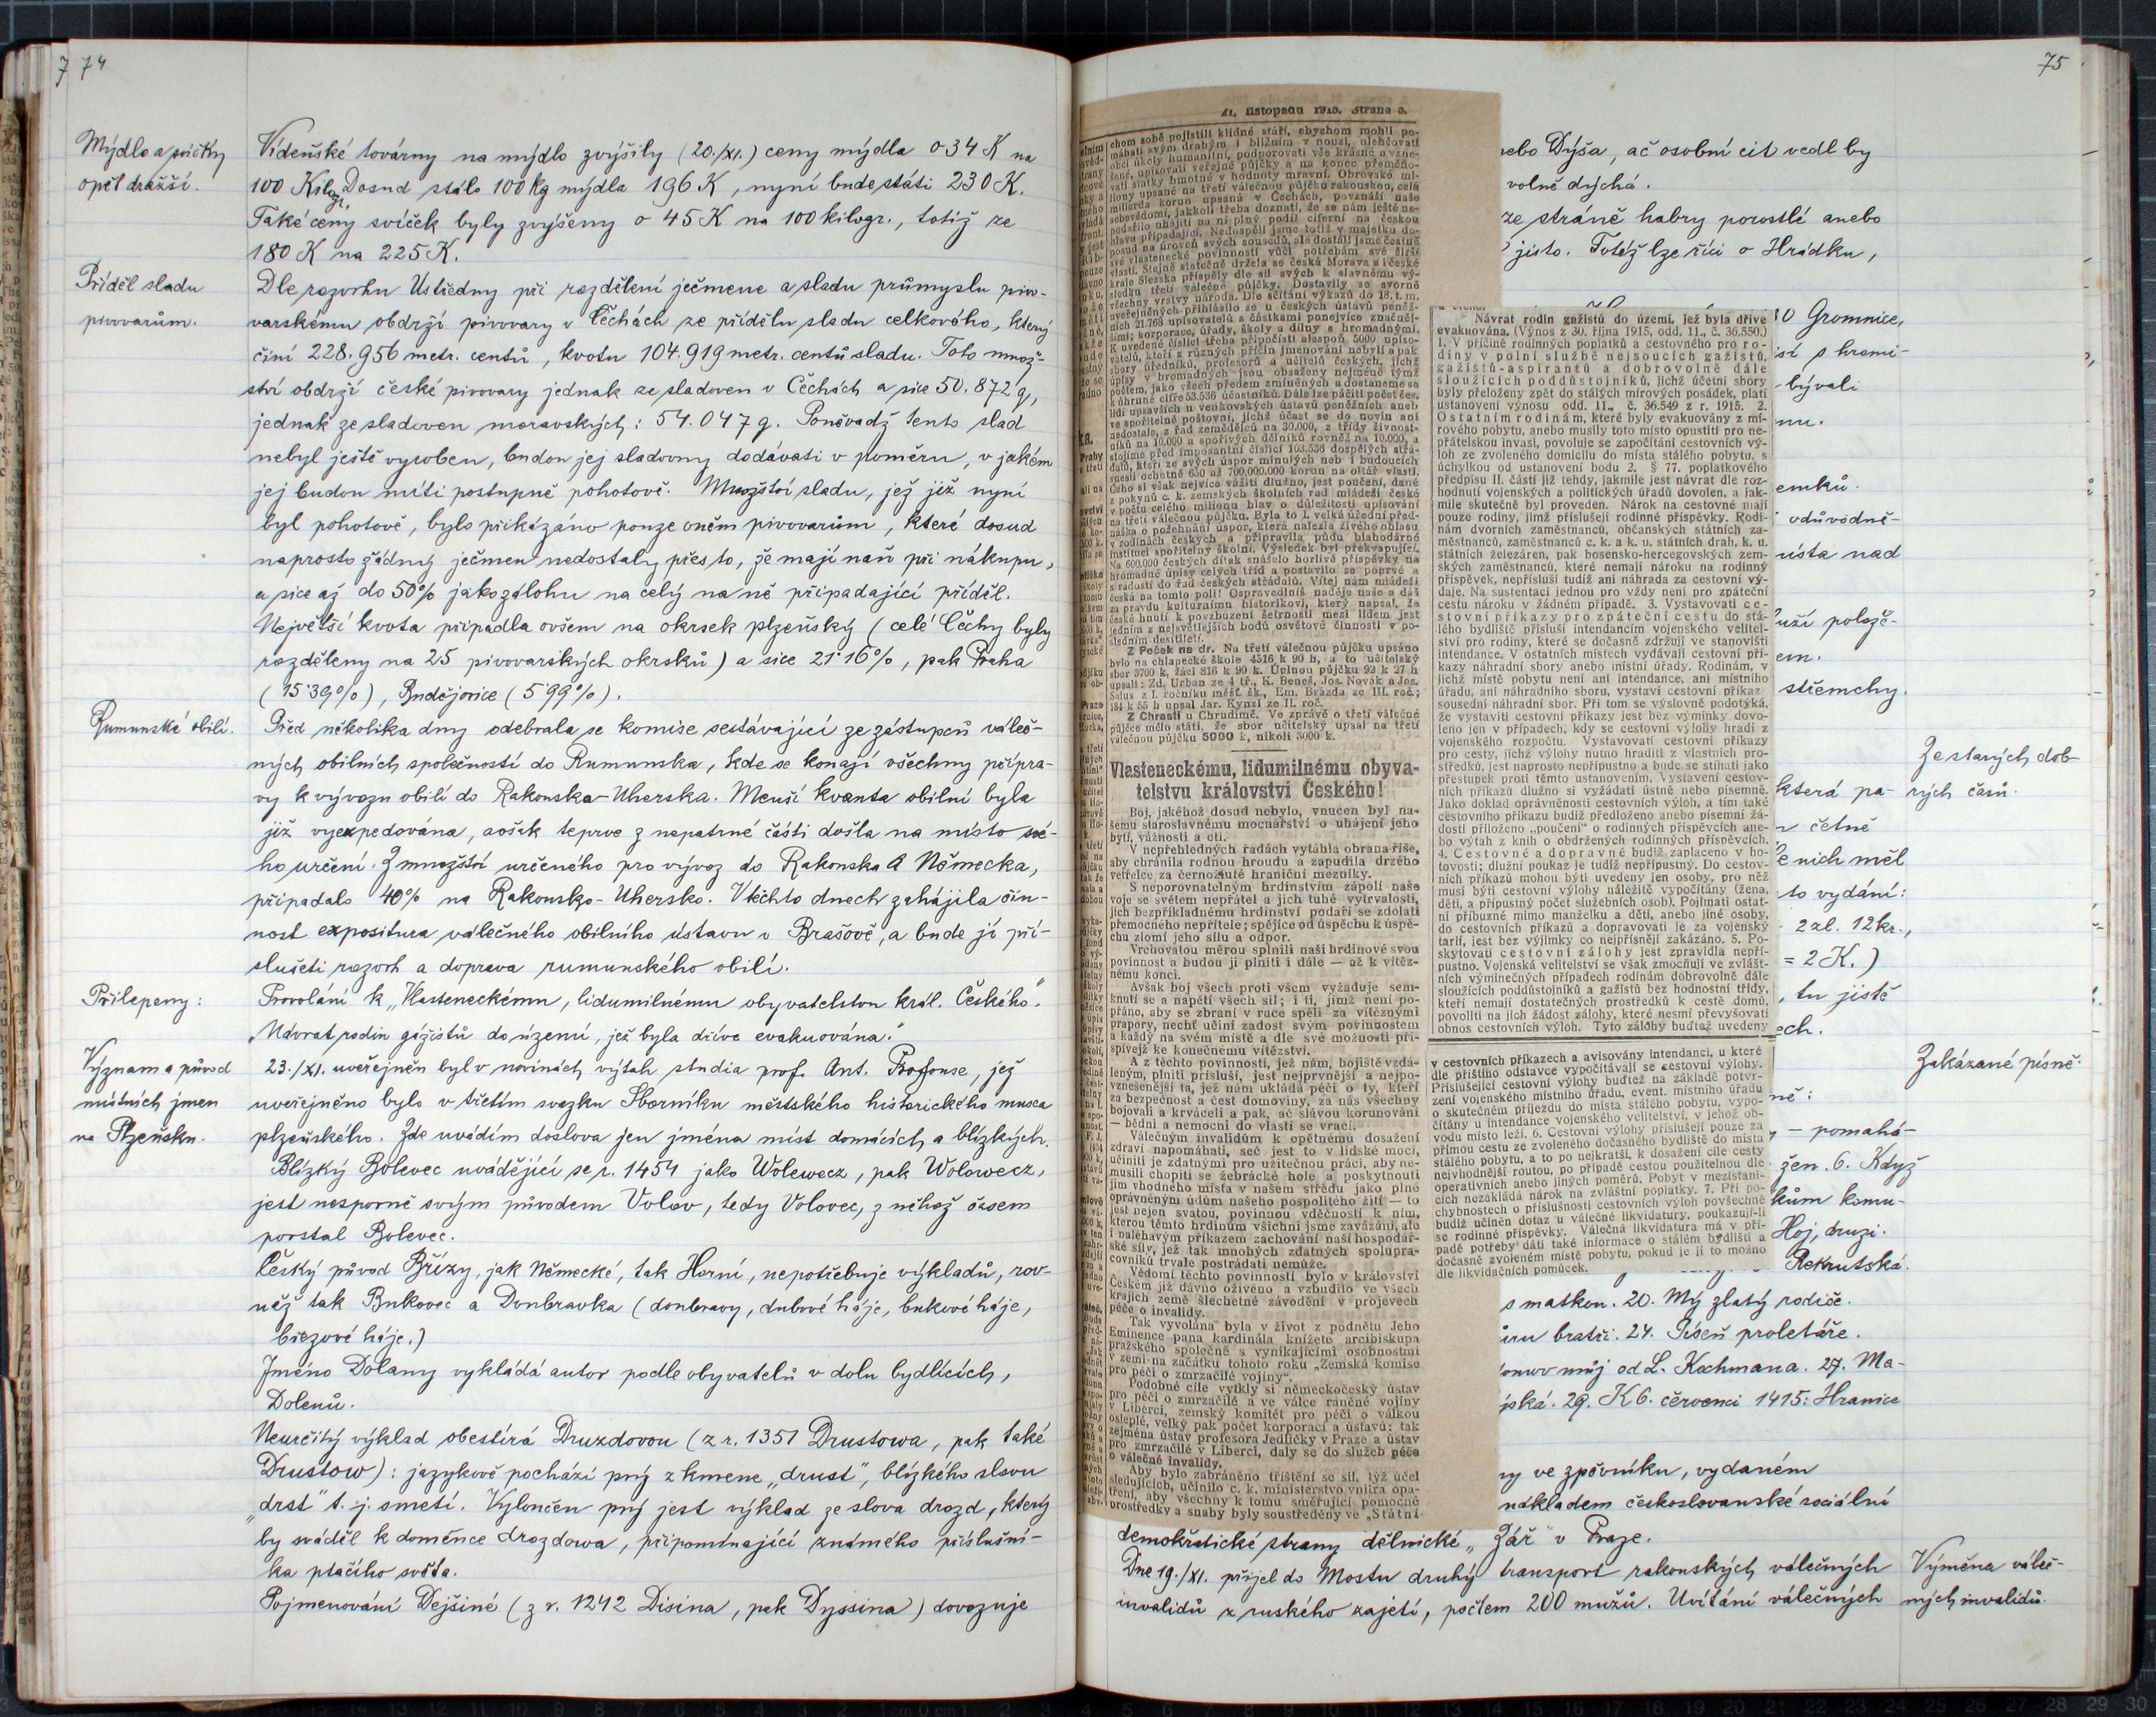 7 74
Mýdlo a svíčky
opět dražší.
Vídeňské továrny na mýdlo zvýšily (20./XI.) ceny mýdla o 34 K na
100 Kilogr. Dosud stálo 100 kg mýdla 196 K, nyní bude státi 230 K.
Také ceny svíček byly zvýšeny o 45 K na 100 kilogr., totiž ze
180 K na 225 K.
Příděl sladu
pivovarům.
Dle rozvrhu Ústředny při rozdělení ječmene a sladu průmyslu pivo-
varskému obdrží pivovary v Čechách ze přídělu sladu celkového, který
činí 228.956 metr. centů, kvotu 104.919 metr. centů sladu. Toto množ-
ství obdrží české pivovary jednak ze sladoven v Čechách a sice 50.872 q,
jednak ze sladoven moravských: 54.047 q. Poněvadž tento slad
nebyl ještě vyroben, budou jej sladovny dodávati v poměru, v jakém
jej budou míti postupně pohotově. Množství sladu, jež již nyní
byl pohotově, bylo přikázáno pouze oněm pivovarům, které dosud
naprosto žádný ječmen nedostaly přes to, že mají naň při nákupu,
a sice až do 50% jako zálohu na celý na ně připadající příděl.
Největší kvota připadla ovšem na okrsek plzeňský (celé Čechy byly
rozděleny na 25 pivovarských okrsků) a sice 21·16%, pak Praha
(15·39%), Budějovice (5·99%).
Rumunské obilí.
Před několika dny odebrala se komise sestávající ze zástupců váleč-
ných obilních společností do Rumunska, kde se konají všechny přípra-
vy k vývozu obilí do Rakouska-Uherska. Menší kvanta obilní byla
již vyexpedována, avšak teprve z nepatrné části došla na místo své-
ho určení. Z množství určeného pro vývoz do Rakouska a Německa,
připadalo 40% na Rakousko-Uhersko. V těchto dnech zahájila čin-
nost expositura válečného obilního ústavu v Brašově, a bude jí pří-
slušeti rozvrh a doprava rumunského obilí.
Přílepeny:
Provolání k „Vlasteneckému, lidumilnému obyvatelstvu král. Českého".
„Návrat rodin gážistů do území, jež byla dříve evakuována."
Význam a původ
místních jmen
na Plzeňsku.
23./XI. uveřejněn byl v novinách výtah studia prof. Ant. Profouse, jež
uveřejněno bylo v třetím svazku Sborníku městského historického musea
plzeňského. Zde uvádím doslova jen jména míst domácích a blízkých.
Blízký Bolevec uvádějící se r. 1454 jako Wolewecz, pak Wolowecz,
jest nesporně svým původem Volov, tedy Volovec, z něhož časem
povstal Bolevec.
Český původ Břízy, jak Německé, tak Horní, nepotřebuje výkladů, rov-
něž tak Bukovec a Doubravka (doubravy, dubové háje, bukové háje,
březové háje.)
Jméno Dolany vykládá autor podle obyvatelů v dolu bydlících,
Dolenů.
Neurčitý výklad obestírá Druzdovou (z r. 1351 Drustowa, pak také
Drustow): jazykově pochází prý z kmene „drust", blízkého slovu
„drst" t. j. smetí. Vyloučen prý jest výklad ze slova drozd, který
by sváděl k domněnce drozdowa, připomínající známého příslušní-
ka ptačího světa.
Pojmenování Dejšiné (z r. 1242 Disina, pak Dyssina) dovozuje
75
21. listopadu 1915. Strana 3.
chom sobě pojistili klidné stáří, abychom mohli po-
máhati svým drahým i bližním v nouzi, ulehčovati
obci úkoly humanitní, podporovati vše krásné a vzne-
šené, upisovali veřejné půjčky a na konec přeměňo-
vati statky hmotné v hodnoty mravní. Obrovské mi-
liony upsané na třetí válečnou půjčku rakouskou, celá
miliarda korun upsaná v Čechách, povznáší naše
sebevědomí, jakkoli třeba doznati, že se nám ještě ne-
podařilo uhájiti na ní plný podíl ciferní na českou
hlavu připadající. Nedospěli jsme totiž v majetku do-
posud na úroveň svých sousedů, ale dostáli jsme čestně
své vlastenecké povinnosti vůči potřebám své širší
vlasti. Stejně statečně držela se česká Morava a i české
kraje Slezska přispěly dle sil svých k slavnému vý-
sledku třetí válečné půjčky. Dostavily se svorně
všechny vrstvy národa. Dle sčítání výkazů do 18. t. m.
uveřejněných přihlásilo se u českých ústavů peněž-
ních 21.768 upisovatelů a částkami ponejvíce značněj-
šími; korporace, úřady, školy a dílny s hromadnými.
K uvedené číslici třeba připočísti alespoň 5000 upiso-
vatelů, kteří z různých příčin jmenováni nebyli a pak
sbory úředníků, profesorů a učitelů českých, jichž
úpisy v hromadných jsou obsaženy nejméně týmž
počtem, jako všech předem zmíněných a dostaneme se
k úhrnné cifře 53.536 účastníků. Dále lze páčiti počet čes.
lidí upsavších u venkovských ústavů peněžních aneb
ve spořitelně poštovní, jichž účast se do novin ani
nedostala, z řad zemědělců na 30.000, z třídy živnost-
níků na 10.000 a spořivých dělníků rovněž na 10.000, a
stojíme před imposantní číslicí 103.536 dospělých střá-
dalů, kteří ze svých úspor minulých neb i budoucích
snesli ochotně 650 až 700,000.000 korun na oltář vlasti.
Čeho si však nejvíce vážiti dlužno, jest poučení, dané
z pokynů c. k. zemských školních rad mládeži české
v počtu celého milionu hlav o důležitosti upisování
na třetí válečnou půjčku. Byla to I. velká úřední před-
náška o požehnání úspor, která nalezla živého ohlasu
v rodinách českých a připravila půdu blahodárné
instituci spořitelny školní. Výsledek byl překvapující.
Na 600.000 českých dítek snášelo horlivě příspěvky na
hromadné úpisy celých tříd a postavilo se poprvé a
s radostí do řad českých střádalů. Vítej nám mládeži
česká na tomto poli! Ospravedlníš naděje naše a dáš
za pravdu kulturnímu historikovi, který napsal, že
české hnutí k povzbuzení šetrnosti mezi lidem jest
jedním z nejsvětlejších bodů osvětové činnosti v po-
sledním desítiletí.
Z Peček na dr. Na třetí válečnou půjčku upsáno
bylo na chlapecké škole 4516 k 90 h, a to učitelský
sbor 3700 k, žáci 816 k 90 k. Úplnou půjčku 92 k 27 h
upsali: Zd. Urban ze 4 tř., K. Beneš, Jos. Novák a Jos.
Šalus z I. ročníku měšť. šk., Em. Brázda ze III. roč.;
184 k 55 h upsal Jar. Kynzl ze II. roč.
Z Chrasti u Chrudimě. Ve zprávě o třetí válečné
půjčce mělo státi, že sbor učitelský upsal na třetí
válečnou půjčku 5000 k, nikoli 3000 k.
Vlasteneckému, lidumilnému obyva-
telstvu království Českého!
Boj, jakéhož dosud nebylo, vnucen byl na-
šemu staroslavnému mocnářství o uhájení jeho
bytí, vážnosti a cti.
V nepřehledných řadách vytáhla obrana říše,
aby chránila rodnou hroudu a zapudila drzého
vetřelce za černožluté hraniční mezníky.
S neporovnatelným hrdinstvím zápolí naše
voje se světem nepřátel a jich tuhé vytrvalosti,
jich bezpříkladnému hrdinství podaří se zdolati
přemocného nepřítele; spějíce od úspěchu k úspě-
chu zlomí jeho sílu a odpor.
Vrchovatou měrou splnili naši hrdinové svou
povinnost a budou ji plniti i dále — až k vítěz-
nému konci.
Avšak boj všech proti všem vyžaduje sem-
knutí se a napětí všech sil; i ti, jimž není po-
přáno, aby se zbraní v ruce spěli za vítěznými
prapory, nechť učiní zadost svým povinnostem
a každý na svém místě a dle své možnosti při-
spívejž ke konečnému vítězství.
A z těchto povinností, jež nám, bojiště vzdá-
leným, plniti přísluší, jest nejprvnější a nejpo-
vznešenější ta, jež nám ukládá péči o ty, kteří
za bezpečnost a čest domoviny, za nás všechny
bojovali a krváceli a pak, ač slávou korunováni
— bědni a nemocni do vlasti se vrací.
Válečným invalidům k opětnému dosažení
zdraví napomáhati, seč jest to v lidské moci,
učiniti je zdatnými pro užitečnou práci, aby ne-
musili chopiti se žebrácké hole a poskytnouti
jim vhodného místa v našem středu jako plně
oprávněným údům našeho pospolitého žití — to
jest nejen svatou, povinnou vděčností k ním,
kterou těmto hrdinům všichni jsme zavázáni, ale
i naléhavým příkazem zachování naší hospodář-
ské síly, jež tak mnohých zdatných spolupra-
covníků trvale postrádati nemůže.
Vědomí těchto povinností bylo v království
Českém již dávno oživeno a vzbudilo ve všech
krajích země šlechetné závodění v projevech
péče o invalidy.
Tak vyvolána byla v život z podnětu Jeho
Eminence pana kardinála knížete arcibiskupa
pražského společně s vynikajícími osobnostmi
v zemi na začátku tohoto roku „Zemská komise
pro péči o zmrzačilé vojíny".
Podobné cíle vytkly si německočeský ústav
pro péči o zmrzačilé a ve válce raněné vojíny
v Liberci, zemský komitét pro péči o válkou
oslepné, velký pak počet korporací a ústavů: tak
zejména ústav profesora Jedličky v Praze a ústav
pro zmrzačilé v Liberci, daly se do služeb péče
o válečné invalidy.
Aby bylo zabráněno tříštění se sil, týž účel
sledujících, učinilo c. k. ministerstvo vnitra opa-
tření, aby všechny k tomu směřující pomocné
prostředky a snahy byly soustředěny ve „Státní
Návrat rodin gažistů do území, jež byla dříve
evakuována. (Výnos z 30. října 1915, odd. 11., č. 36.550.)
1. V příčině rodinných poplatků a cestovného pro ro-
diny v polní službě nejsoucích gažistů,
gažistů-aspirantů a dobrovolně dále
sloužících poddůstojníků, jichž účetní sbory
byly přeloženy zpět do stálých mírových posádek, platí
ustanovení výnosu odd. 11., č. 36.549 z r. 1915. 2.
Ostatním rodinám, které byly evakuovány z mí-
rového pobytu, anebo musily toto místo opustiti pro ne-
přátelskou invasi, povoluje se započítání cestovních vý-
loh ze zvoleného domicilu do místa stálého pobytu, s
úchylkou od ustanovení bodu 2. § 77. poplatkového
předpisu II. části již tehdy, jakmile jest návrat dle roz-
hodnutí vojenských a politických úřadů dovolen, a jak-
mile skutečně byl proveden. Nárok na cestovné mají
pouze rodiny, jimž příslušejí rodinné příspěvky. Rodi-
nám dvorních zaměstnanců, občanských státních za-
městnanců, zaměstnanců c. k. a k. u. státních drah, k. u.
státních železáren, pak bosensko-hercegovských zem-
ských zaměstnanců, které nemají nároku na rodinný
příspěvek, nepřísluší tudíž ani náhrada za cestovní vý-
daje. Na sustentaci jednou pro vždy není pro zpáteční
cestu nároku v žádném případě. 3. Vystavovati ce-
stovní příkazy pro zpáteční cestu do stá-
lého bydliště přísluší intendancím vojenského velitel-
ství pro rodiny, které se dočasně zdržují ve stanovišti
intendance. V ostatních místech vydávají cestovní pří-
kazy náhradní sbory anebo místní úřady. Rodinám, v
jichž místě pobytu není ani intendance, ani místního
úřadu, ani náhradního sboru, vystaví cestovní příkaz
sousední náhradní sbor. Při tom se výslovně podotýká,
že vystaviti cestovní příkazy jest bez výminky dovo-
leno jen v případech, kdy se cestovní výlohy hradí z
vojenského rozpočtu. Vystavovati cestovní příkazy
pro cesty, jichž výlohy nutno hraditi z vlastních pro-
středků, jest naprosto nepřípustno a bude se stíhati jako
přestupek proti těmto ustanovením. Vystavení cestov-
ních příkazů dlužno si vyžádati ústně nebo písemně.
Jako doklad oprávněnosti cestovních výloh, a tím také
cestovního příkazu budiž předloženo anebo písemní žá-
dosti přiloženo „poučení" o rodinných příspěvcích ane-
bo výtah z knih o obdržených rodinných příspěvcích.
4. Cestovné a dopravné budiž zaplaceno v ho-
tovosti; dlužní poukaz je tudíž nepřípustný. Do cestov-
ních příkazů mohou býti uvedeny jen osoby, pro něž
musí býti cestovní výlohy náležitě vypočítány (žena,
děti, a přípustný počet služebních osob). Pojímati ostat-
ní příbuzné mimo manželku a děti, anebo jiné osoby,
do cestovních příkazů a dopravovati je za vojenský
tarif, jest bez výjimky co nejpřísněji zakázáno. 5. Po-
skytovati cestovní zálohy jest zpravidla nepří-
pustno. Vojenská velitelství se však zmocňují ve zvlášt-
ních výminečných případech rodinám dobrovolně dále
sloužících poddůstojníků a gažistů bez hodnostní třídy,
kteří nemají dostatečných prostředků k cestě domů,
povoliti na jich žádost zálohy, které nesmí převyšovati
obnos cestovních výloh. Tyto zálohy buďtež uvedeny
v cestovních příkazech a avisovány intendanci, u které
dle příštího odstavce vypočítávají se cestovní výlohy.
Příslušející cestovní výlohy buďtež na základě potvr-
zení vojenského místního úřadu, event. místního úřadu
o skutečném příjezdu do místa stálého pobytu, vypo-
čítány u intendance vojenského velitelství, v jehož ob-
vodu místo leží. 6. Cestovní výlohy příslušejí pouze za
přímou cestu ze zvoleného dočasného bydliště do místa
stálého pobytu, a to po nejkratší, k dosažení cíle cesty
nejvhodnější routou, po případě cestou použitelnou dle
operativních anebo jiných poměrů. Pobyt v mezistani-
cích nezakládá nárok na zvláštní poplatky. 7. Při po-
chybnostech o příslušnosti cestovních výloh povšechně
budiž učiněn dotaz u válečné likvidatury, poukazují-li
se rodinné příspěvky. Válečná likvidatura má v pří-
padě potřeby dáti také informace o stálém bydlišti a
dočasně zvoleném místě pobytu, pokud je jí to možno
dle likvidačních pomůcek.
nebo Dýša, ač osobní cit vedl by
volně dýchá.
ze stráně habry porostlé anebo
jisto. Totéž lze říci o Hrádku,
Gromnice,
s hromi-
bývali
emků.
odůvodně-
ústa nad
polože-
střemchy.
Ze starých dob-
rých časů.
která pa-
četné
nich měl
to vydání:
2 zl. 12 kr.,
= 2 K.)
, tu jistě
ech.
Zakázané písně.
ně:
– pomahá-
žen. 6. Když
kům komu-
Hoj, druzi.
Rekrutská.
s matkou. 20. Mý zlatý rodiče.
bratři. 24. Píseň proletáře.
můj od L. Kochmana. 27. Ma-
29. K 6. červenci 1415: Hranice
ve zpěvníku, vydaném
nákladem českoslovanské sociální
demokratické strany dělnické „Zář" v Praze.
Dne 19./XI. přijel do Mostu druhý transport rakouských válečných
invalidů z ruského zajetí, počtem 200 mužů. Uvítání válečných
Výměna váleč-
ných invalidů.